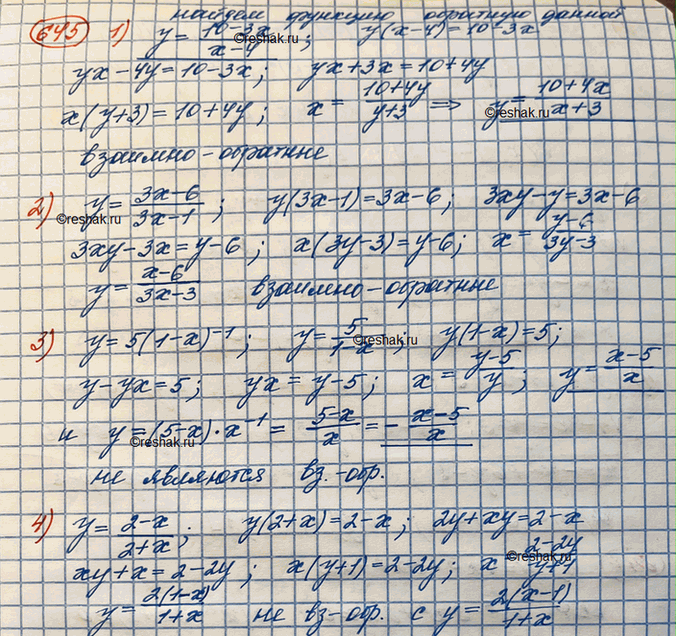 найдем функцию обратную данной
645 1) y = 10-3x / x-4 ; y(x-4) = 10-3x
yx - 4y = 10-3x ; yx + 3x = 10+4y
x(y+3) = 10+4y ; x = 10+4y / y+3 ⇒ y = 10+4x / x+3
взаимно-обратные
2) y = 3x-6 / 3x-1 ; y(3x-1) = 3x-6 ; 3xy-y = 3x-6
3xy-3x = y-6 ; x(3y-3) = y-6 ; x = y-6 / 3y-3
y = x-6 / 3x-3 взаимно-обратные
3) y = 5(1-x)⁻¹ ; y = 5 / 1-x ; y(1-x) = 5 ;
y-yx = 5 ; yx = y-5 ; x = y-5 / y ; y = x-5 / x
и y = (5-x)·x⁻¹ = 5-x / x = - x-5 / x
не являются вз.-обр.
4) y = 2-x / 2+x ; y(2+x) = 2-x ; 2y+xy = 2-x
xy+x = 2-2y ; x(y+1) = 2-2y ; x = 2-2y / y+1
y = 2(1-x) / 1+x не вз-обр. с y = 2(x-1) / 1+x
©reshak.ru
©reshak.ru
©reshak.ru
©reshak.ru
©reshak.ru
©reshak.ru